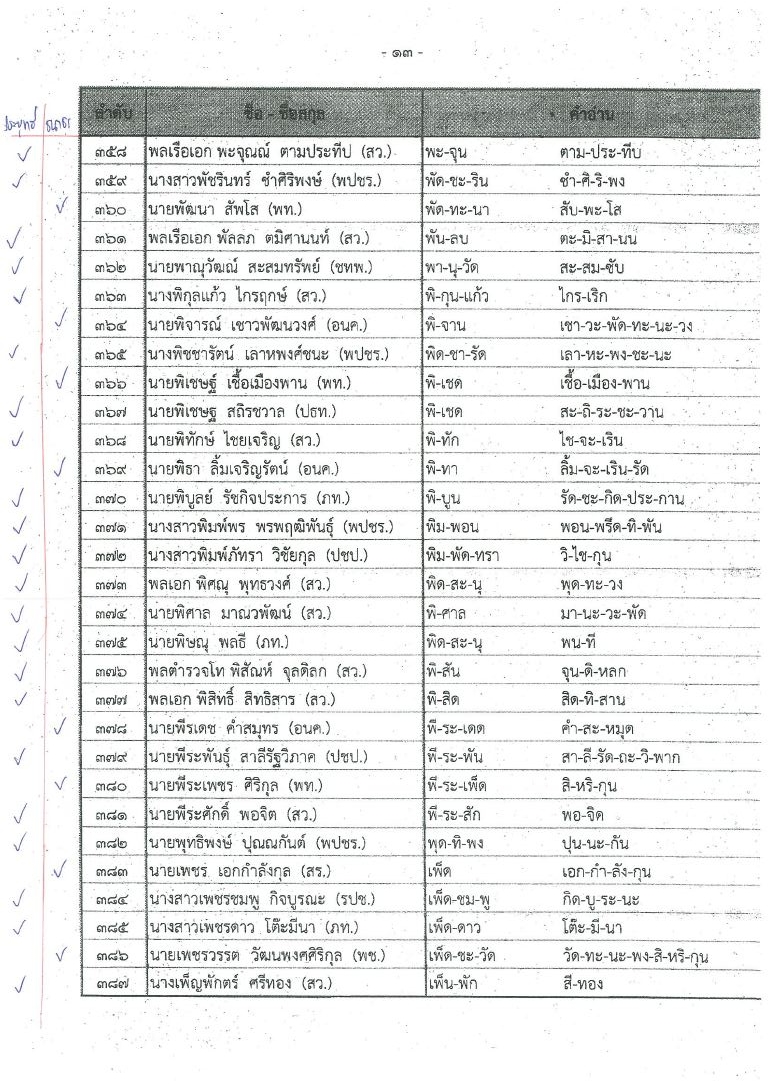 - ๑๓ -
ประยุทธ์ ธนาธร ลำดับ ชื่อ - ชื่อสกุล คำอ่าน
✓ ๓๕๘ พลเรือเอก พะจุณณ์ ตามประทีป (สว.) พะ-จุน ตาม-ประ-ทีบ
✓ ๓๕๙ นางสาวพัชรินทร์ ซำศิริพงษ์ (พปชร.) พัด-ชะ-ริน ซำ-สิ-ริ-พง
✓ ๓๖๐ นายพัฒนา สัพโส (พท.) พัด-ทะ-นา สับ-พะ-โส
✓ ๓๖๑ พลเรือเอก พัลลภ ตมิศานนท์ (สว.) พัน-ลบ ตะ-มิ-สา-นน
✓ ๓๖๒ นายพาณุวัฒณ์ สะสมทรัพย์ (ชทพ.) พา-นุ-วัด สะ-สม-ซับ
✓ ๓๖๓ นางพิกุลแก้ว ไกรฤกษ์ (สว.) พิ-กุน-แก้ว ไกร-เริก
✓ ๓๖๔ นายพิจารณ์ เชาวพัฒนวงศ์ (อนค.) พิ-จาน เชา-วะ-พัด-ทะ-นะ-วง
✓ ๓๖๕ นางพิชชารัตน์ เลาหพงศ์ชนะ (พปชร.) พิด-ชา-รัด เลา-หะ-พง-ชะ-นะ
✓ ๓๖๖ นายพิเชษฐ์ เชื้อเมืองพาน (พท.) พิ-เชด เชื้อ-เมือง-พาน
✓ ๓๖๗ นายพิเชษฐ สถิรชวาล (ปธท.) พิ-เชด สะ-ถิ-ระ-ชะ-วาน
✓ ๓๖๘ นายพิทักษ์ ไชยเจริญ (สว.) พิ-ทัก ไช-จะ-เริน
✓ ๓๖๙ นายพิธา ลิ้มเจริญรัตน์ (อนค.) พิ-ทา ลิ้ม-จะ-เริน-รัด
✓ ๓๗๐ นายพิบูลย์ รัชกิจประการ (ภท.) พิ-บูน รัด-ชะ-กิด-ประ-กาน
✓ ๓๗๑ นางสาวพิมพ์พร พรพฤฒิพันธุ์ (พปชร.) พิม-พอน พอน-พรึด-ทิ-พัน
✓ ๓๗๒ นางสาวพิมพ์ภัทรา วิชัยกุล (ปชป.) พิม-พัด-ทรา วิ-ไช-กุน
✓ ๓๗๓ พลเอก พิศณุ พุทธวงศ์ (สว.) พิด-สะ-นุ พุด-ทะ-วง
✓ ๓๗๔ นายพิศาล มาณวพัฒน์ (สว.) พิ-ศาล มา-นะ-วะ-พัด
✓ ๓๗๕ นายพิษณุ พลธี (ภท.) พิด-สะ-นุ พน-ที
✓ ๓๗๖ พลตำรวจโท พิสัณห์ จุลดิลก (สว.) พิ-สัน จุน-ดิ-หลก
✓ ๓๗๗ พลเอก พิสิทธิ์ สิทธิสาร (สว.) พิ-สิด สิด-ทิ-สาน
✓ ๓๗๘ นายพีรเดช คำสมุทร (อนค.) พี-ระ-เดด คำ-สะ-หมุด
✓ ๓๗๙ นายพีระพันธุ์ สาลีรัฐวิภาค (ปชป.) พี-ระ-พัน สา-ลี-รัด-ถะ-วิ-พาก
✓ ๓๘๐ นายพีระเพชร ศิริกุล (พท.) พี-ระ-เพ็ด สิ-หริ-กุน
✓ ๓๘๑ นายพีระศักดิ์ พอจิต (สว.) พี-ระ-สัก พอ-จิด
✓ ๓๘๒ นายพุทธิพงษ์ ปุณณกันต์ (พปชร.) พุด-ทิ-พง ปุน-นะ-กัน
✓ ๓๘๓ นายเพชร เอกกำลังกุล (สร.) เพ็ด เอก-กำ-ลัง-กุน
✓ ๓๘๔ นางสาวเพชรชมพู กิจบูรณะ (รปช.) เพ็ด-ชม-พู กิด-บู-ระ-นะ
✓ ๓๘๕ นางสาวเพชรดาว โต๊ะมีนา (ภท.) เพ็ด-ดาว โต๊ะ-มี-นา
✓ ๓๘๖ นายเพชรวรรต วัฒนพงศศิริกุล (พช.) เพ็ด-ชะ-วัด วัด-ทะ-นะ-พง-สิ-หริ-กุน
✓ ๓๘๗ นางเพ็ญพักตร์ ศรีทอง (สว.) เพ็น-พัก สี-ทอง